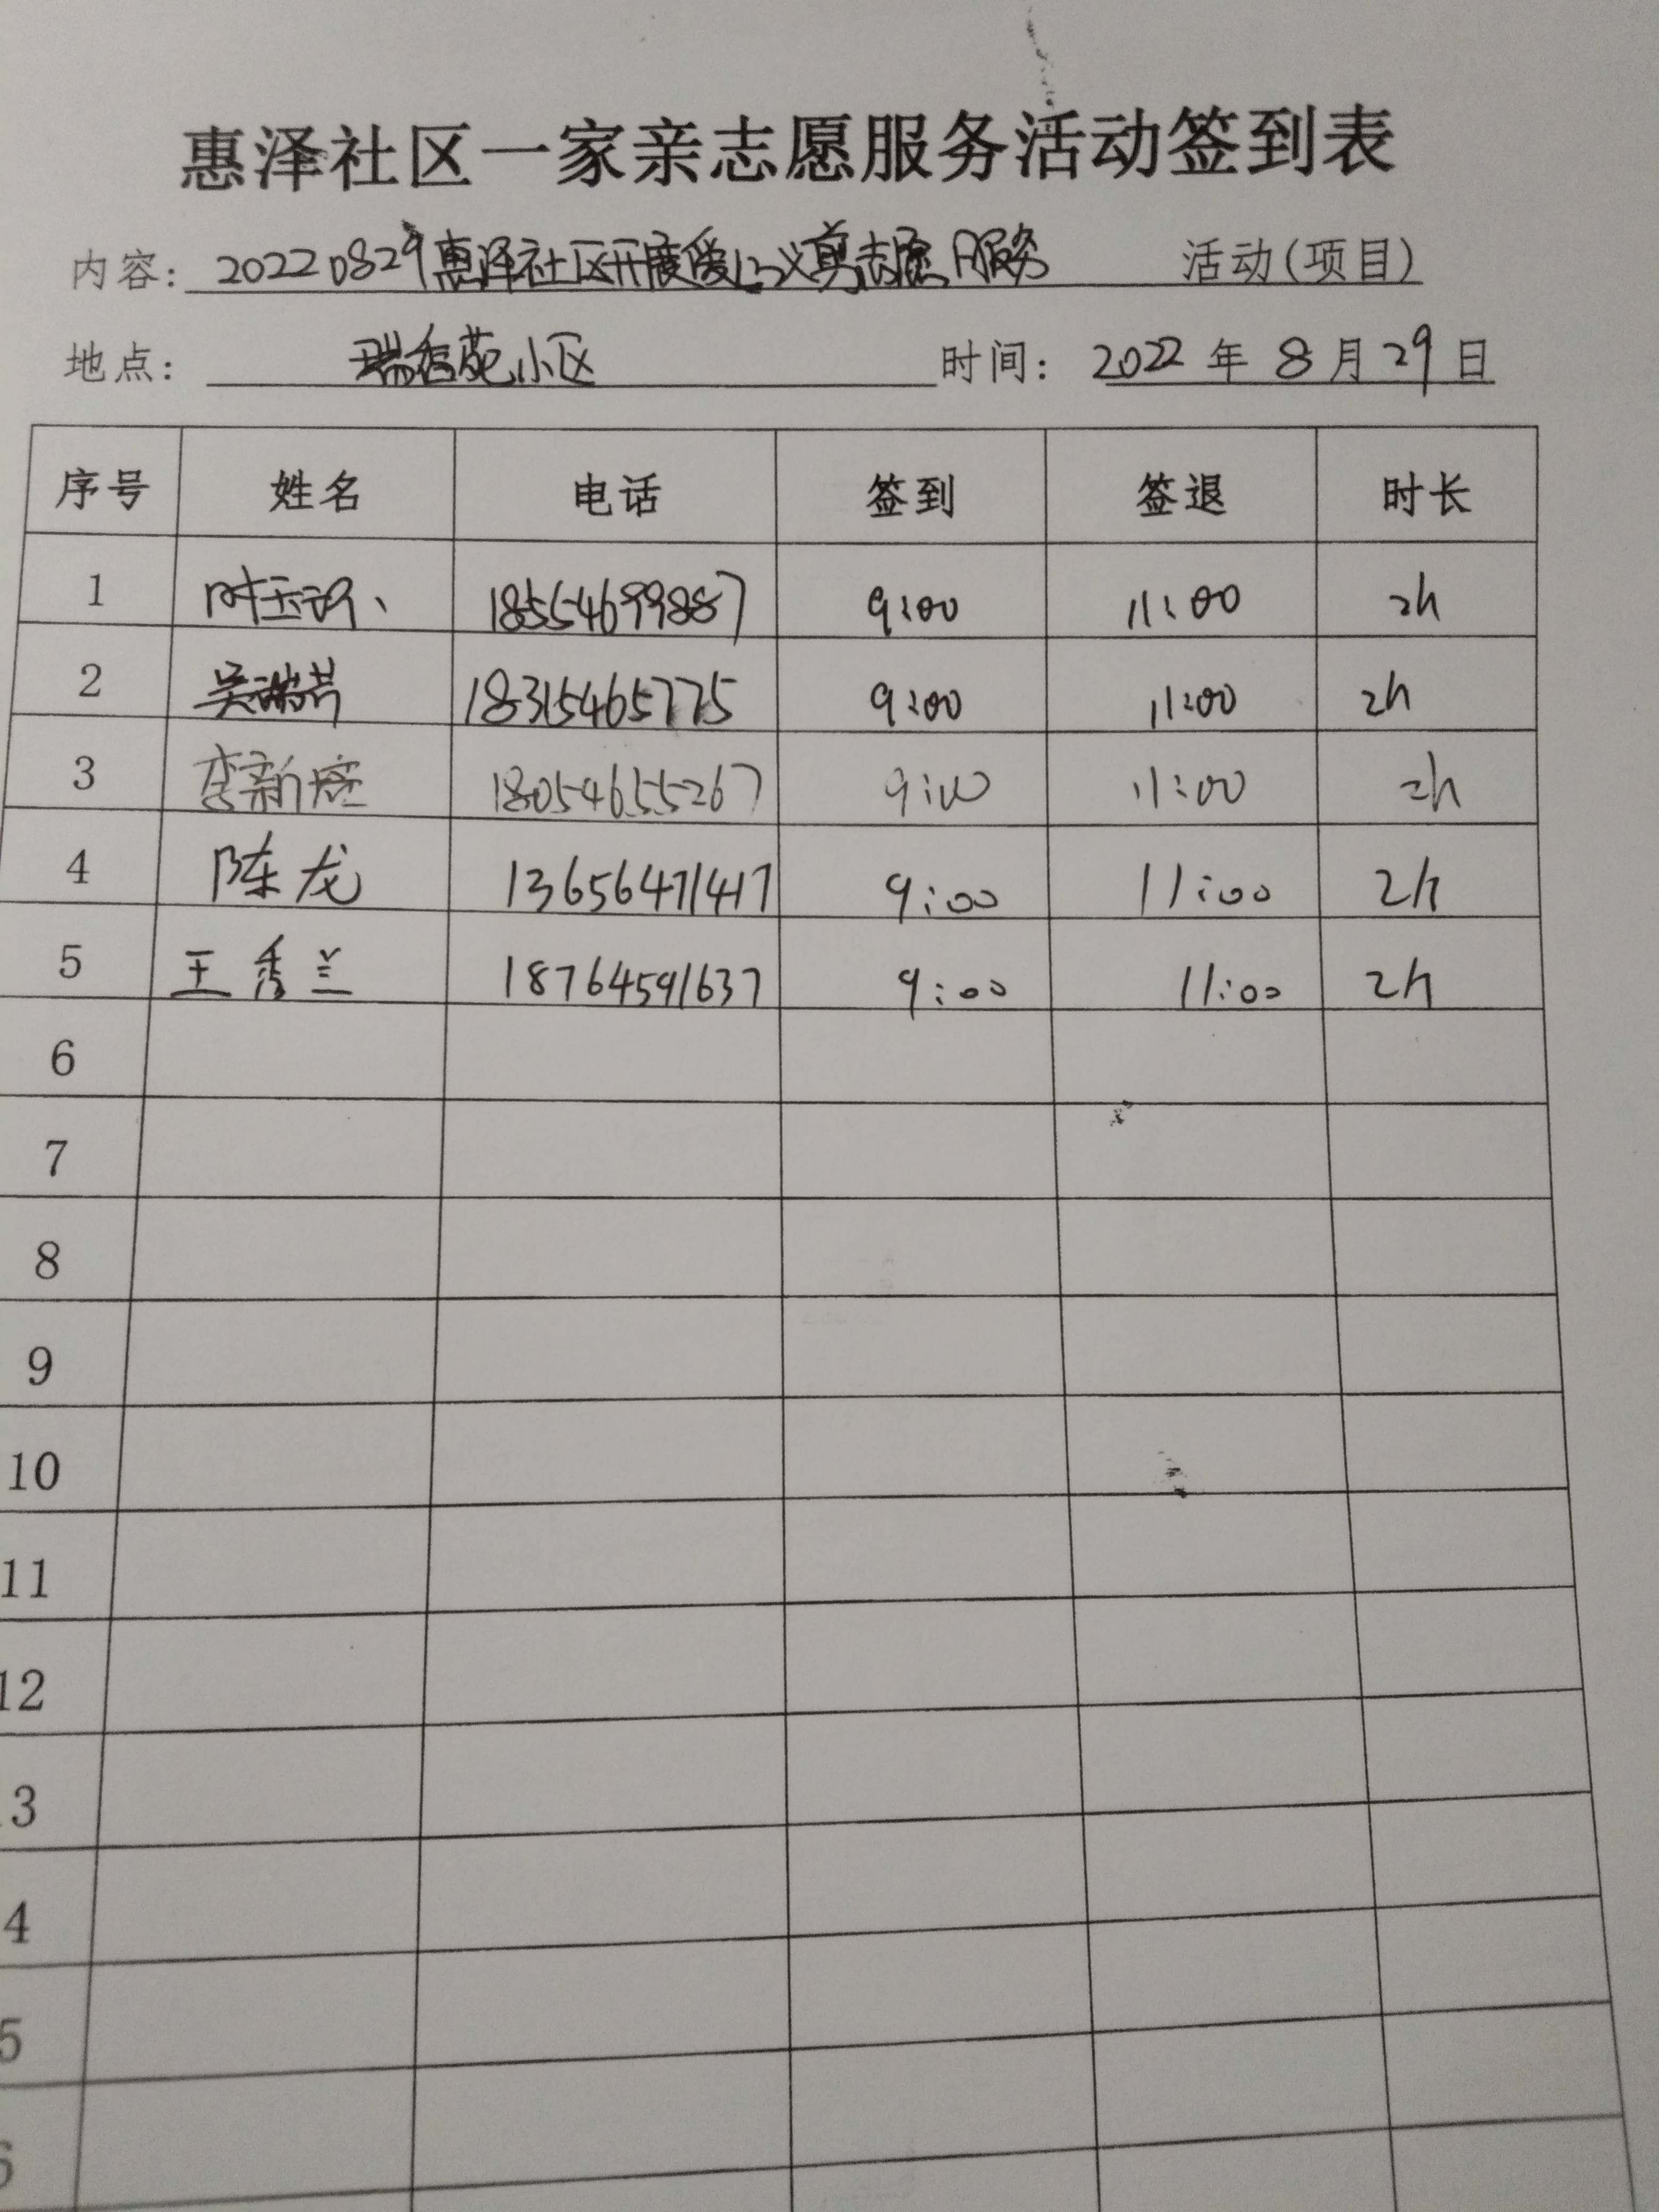 惠泽社区一家亲志愿服务活动签到表
内容：20220829惠泽社区开展爱心义剪志愿服务 活动(项目)
地点： 瑞香苑小区 时间： 2022 年 8 月 29 日
序号 姓名 电话 签到 签退 时长
1 18554699887 9:00 11:00 2h
2 吴瑞芹 18315465775 9:00 11:00 2h
3 李新 18054655267 9:00 11:00 2h
4 陈龙 13656471417 9:00 11:00 2h
5 王秀兰 18764591637 9:00 11:00 2h
6
7
8
9
10
11
12
3
4
5